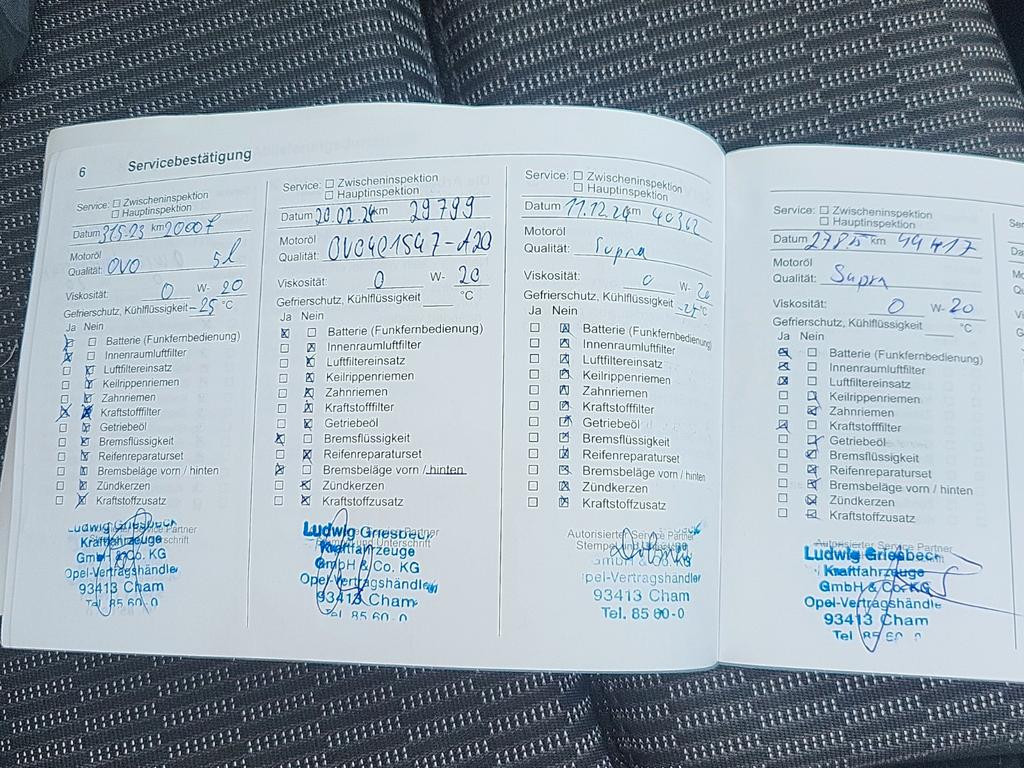 6 Servicebestätigung
Service: ☐ Zwischeninspektion
☐ Hauptinspektion
Datum 31.5.23 km 20007
Motoröl
Qualität: OVO 5l
Viskosität: 0 W- 20
Gefrierschutz, Kühlflüssigkeit -25 °C
Ja Nein
Batterie (Funkfernbedienung)
Innenraumluftfilter
Luftfiltereinsatz
Keilrippenriemen
Zahnriemen
Kraftstofffilter
Getriebeöl
Bremsflüssigkeit
Reifenreparaturset
Bremsbeläge vorn / hinten
Zündkerzen
Kraftstoffzusatz
Ludwig Griesbeck
Kraftfahrzeuge
GmbH & Co. KG
Opel-Vertragshändler
93413 Cham
Tel. 85 60-0
Service: ☐ Zwischeninspektion
☐ Hauptinspektion
Datum 20.02.24 km 29799
Motoröl
Qualität: OVO401547-A20
Viskosität: 0 W- 20
Gefrierschutz, Kühlflüssigkeit °C
Ja Nein
Batterie (Funkfernbedienung)
Innenraumluftfilter
Luftfiltereinsatz
Keilrippenriemen
Zahnriemen
Kraftstofffilter
Getriebeöl
Bremsflüssigkeit
Reifenreparaturset
Bremsbeläge vorn / hinten
Zündkerzen
Kraftstoffzusatz
Ludwig Griesbeck
Kraftfahrzeuge
GmbH & Co. KG
Opel-Vertragshändler
93413 Cham
Tel. 85 60-0
Service: ☐ Zwischeninspektion
☐ Hauptinspektion
Datum 11.12.24 km 40362
Motoröl
Qualität: Supra
Viskosität: 0 W- 20
Gefrierschutz, Kühlflüssigkeit -25 °C
Ja Nein
Batterie (Funkfernbedienung)
Innenraumluftfilter
Luftfiltereinsatz
Keilrippenriemen
Zahnriemen
Kraftstofffilter
Getriebeöl
Bremsflüssigkeit
Reifenreparaturset
Bremsbeläge vorn / hinten
Zündkerzen
Kraftstoffzusatz
Autorisierter Service Partner
GmbH & Co. KG
Opel-Vertragshändler
93413 Cham
Tel. 85 60-0
Service: ☐ Zwischeninspektion
☐ Hauptinspektion
Datum 27 8 25 km 49417
Motoröl
Qualität: Supra
Viskosität: 0 W- 20
Gefrierschutz, Kühlflüssigkeit °C
Ja Nein
Batterie (Funkfernbedienung)
Innenraumluftfilter
Luftfiltereinsatz
Keilrippenriemen
Zahnriemen
Kraftstofffilter
Getriebeöl
Bremsflüssigkeit
Reifenreparaturset
Bremsbeläge vorn / hinten
Zündkerzen
Kraftstoffzusatz
Autorisierter Service Partner
Ludwig Griesbeck
Kraftfahrzeuge
GmbH & Co. KG
Opel-Vertragshändler
93413 Cham
Tel 85 60-0